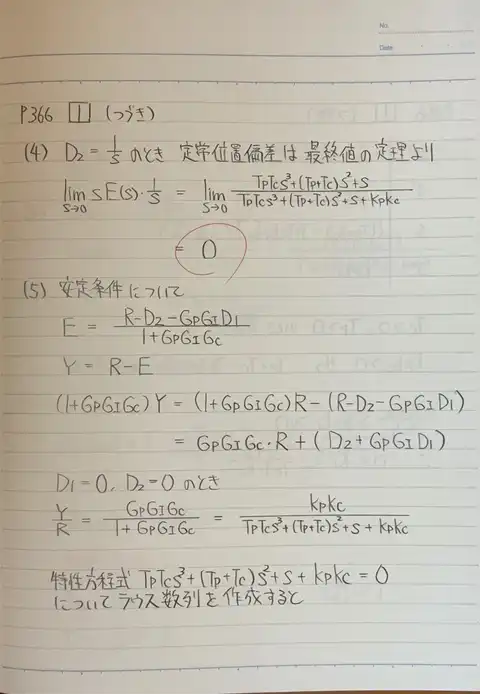 No.
Date
P366 1 (つづき)
(4) D₂ = 1/s のとき 定常位置偏差は 最終値の定理より
lim_{s→0} sE(s)・1/s = lim_{s→0} (TpTcs³+(Tp+Tc)s²+s)/(TpTcs³+(Tp+Tc)s²+s+KpKc)
= 0
(5) 安定条件について
E = (R-D₂-GpGID₁)/(1+GpGIGc)
Y = R-E
(1+GpGIGc)Y = (1+GpGIGc)R-(R-D₂-GpGID₁)
= GpGIGc・R+(D₂+GpGID₁)
D₁=0, D₂=0 のとき
Y/R = GpGIGc/(1+GpGIGc) = KpKc/(TpTcs³+(Tp+Tc)s²+s+KpKc)
特性方程式 TpTcs³+(Tp+Tc)s²+s+KpKc=0
についてラウス数列を作成すると